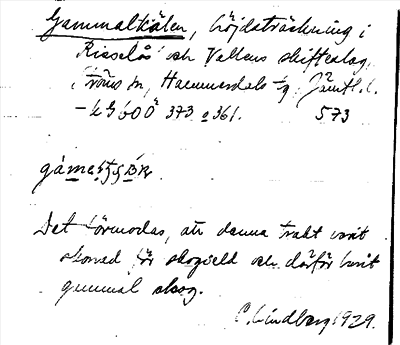 Gammalkälen, höjdsträckning i
Risselås och Vallens skifteslag,
i Ströms sn, Hammerdals tg. Jämtl. l.
373 o 361. 573
Det förmodas, att denna trakt varit
skonad för skogseld och därför burit
gammal skog.
C. Lindberg 1929.